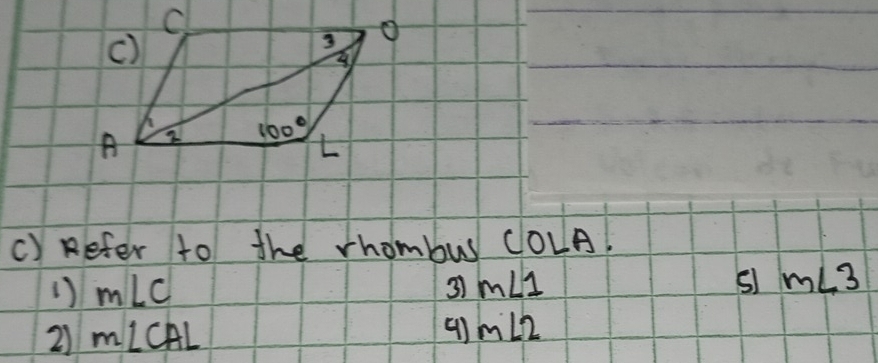 C O
C) 3
4
1
2 100°
A L
C) Refer to the rhombus COLA.
1) m∠C 3) m∠1 5) m∠3
2) m∠CAL 4) m∠2